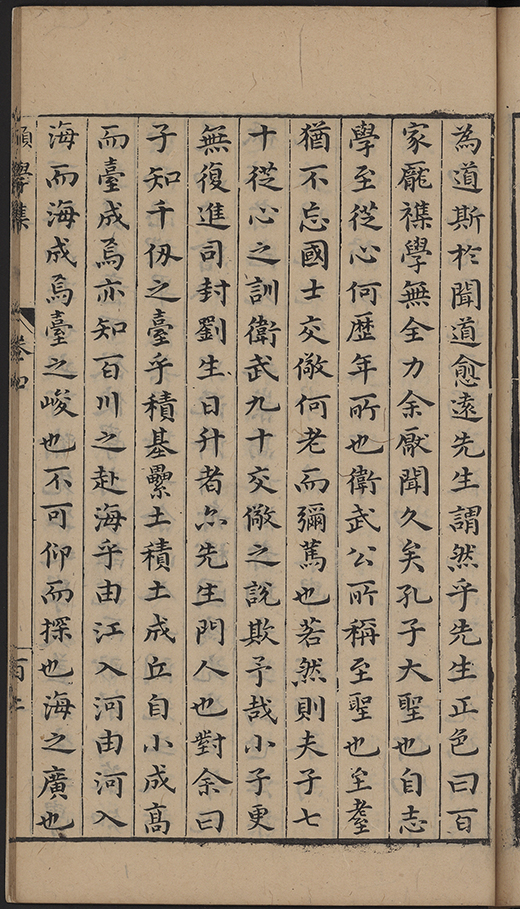 為道斯於聞道愈遠先生謂然乎先生正色曰百
家龎襍學無全力余厭聞久矣孔子大聖也自志
學至從心何歷年所也衛武公所稱至聖也至耋
猶不忘國士交儆何老而彌篤也若然則夫子七
十從心之訓衛武九十交儆之說欺予哉小子更
無復進司封劉生日升者亦先生門人也對余曰
子知千仭之臺乎積基纍土積土成丘自小成高
而臺成焉亦知百川之赴海乎由江入河由河入
海而海成焉臺之峻也不可仰而探也海之廣也
學集
卷四